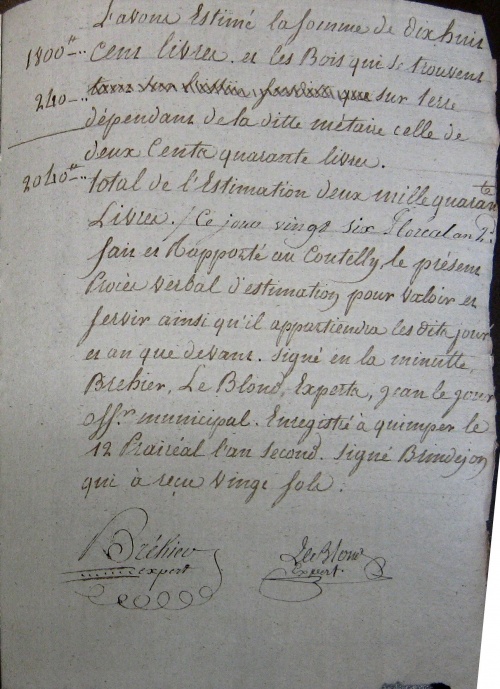 L'avons Estimé la somme de dix huit
1800ᵗᵗ... Cent livres. et les Bois qui se trouvent
240... sur terre
dépendant de la ditte métaire celle de
deux Cents quarante livres.
2040ᵗᵗ... total de l'Estimation deux mille quarante
Livres. / Ce jour vingt six Floréal an 2.
fait et Rapporté au Coutelly, le présent
Procès verbal d'estimation pour valoir et
servir ainsi qu'il appartiendra les dits jour
et an que devant. signé en la minutte,
Bréhier, Le Blond, Experts, jean le jour
offʳ municipal. Enregistré à quimper le
12 Prairéal l'an second. signé
qui à reçu vingt sols.
Bréhier
expert
Le Blond
Expert.